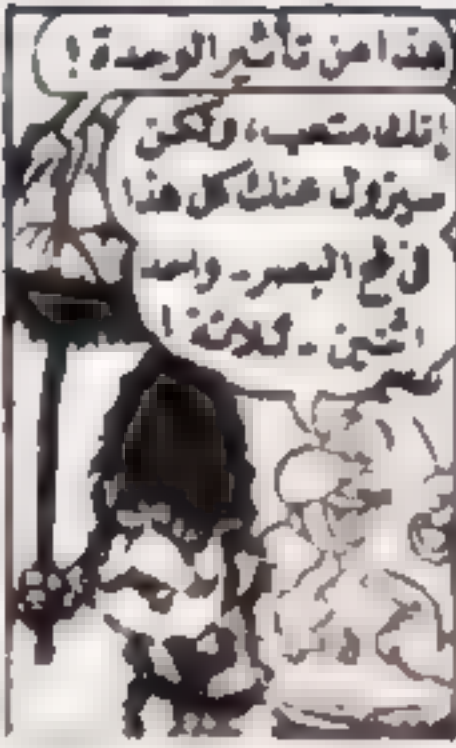 هذا من تأثير الوحدة !
إنك متعب، ولكن
سيزول عنك كل هذا
في لمح البصر - واحد
اثنين - ثلاثة !